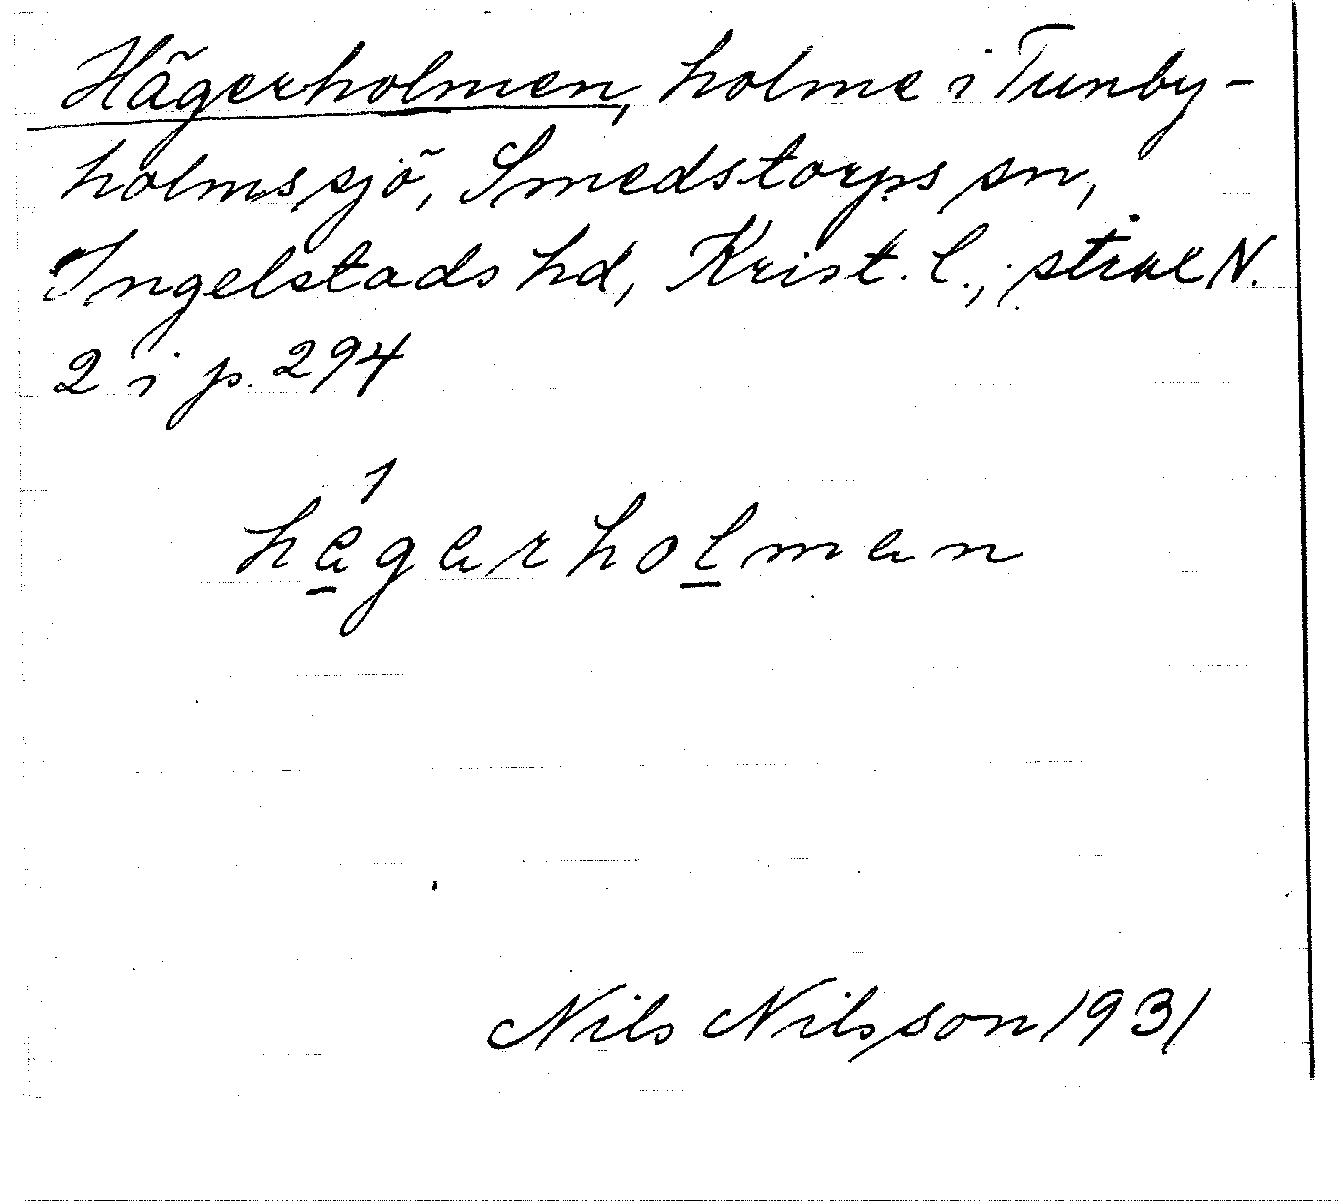 Hägerholmen, holme i Tunby-
holmssjö, Smedstorps sn,
Ingelstads hd, Krist. l.,
2 i p. 294
1
hägarholman
Nils Nilsson 1931